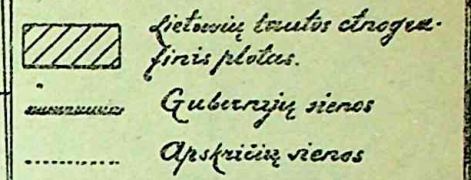 Lietuvių tautos etnogra-
finis plotas.
Gubernijų sienos
Apskričių sienos